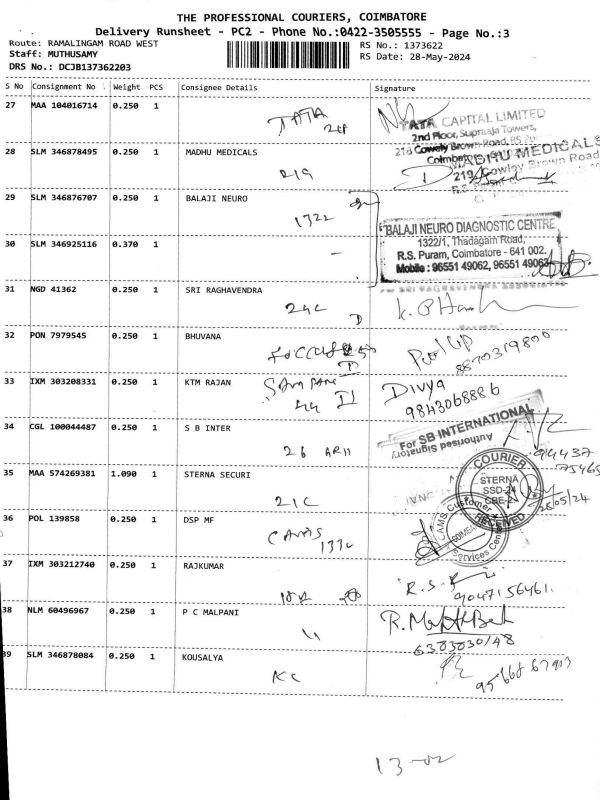 THE PROFESSIONAL COURIERS, COIMBATORE
Delivery Runsheet - PC2 - Phone No.:0422-3505555 - Page No.:3
Route: RAMALINGAM ROAD WEST
RS No.: 1373622
Staff: MUTHUSAMY
RS Date: 28-May-2024
DRS No.: DCJB137362203
S No Consignment No Weight PCS Consignee Details Signature
27 MAA 104016714 0.250 1
TATA
TATA CAPITAL LIMITED
2nd Floor, Supraaja Towers,
218 Cowely Brown Road,
28 SLM 346878495 0.250 1 MADHU MEDICALS
219
MADHU MEDICALS
219, Cowley Brown Road
29 SLM 346876707 0.250 1 BALAJI NEURO
1322
BALAJI NEURO DIAGNOSTIC CENTRE
1322/1, Thadagam Road,
R.S. Puram, Coimbatore - 641 002.
Mobile : 96551 49062, 96551 49063
30 SLM 346925116 0.370 1
-
31 NGD 41362 0.250 1 SRI RAGHAVENDRA
24C D
32 PON 7979545 0.250 1 BHUVANA
8870319800
33 IXM 303208331 0.250 1 KTM RAJAN
Divya
9843068886
34 CGL 100044487 0.250 1 S B INTER
26
For SB INTERNATIONAL
Authorised Signatory
94437
75465
35 MAA 574269381 1.090 1 STERNA SECURI
21C
COURIER
STERNA
SSD-24
CBE-2
RECEIVED
28/05/24
36 POL 139858 0.250 1 DSP MF
CAMS
1334
CAMS Customer Services Center
37 IXM 303212740 0.250 1 RAJKUMAR
9047156461.
38 NLM 60496967 0.250 1 P C MALPANI
11
39 SLM 346878084 0.250 1 KOUSALYA
KC
13-02